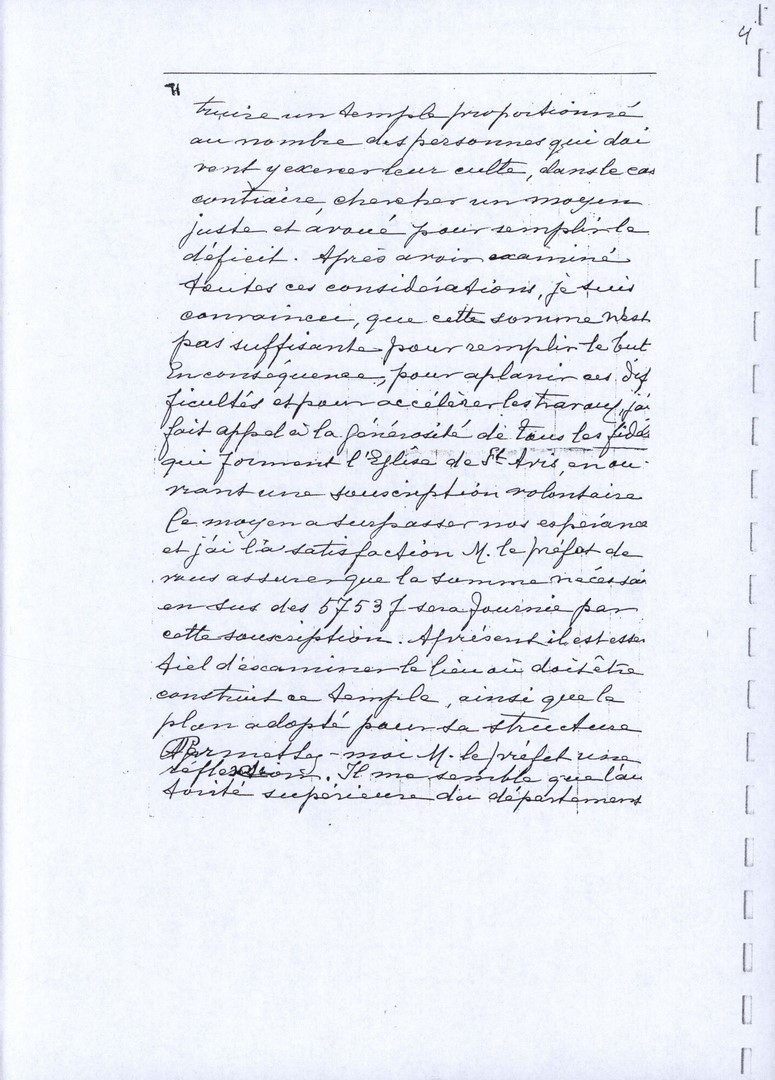 4
4
truire un temple proportionné
au nombre des personnes qui doi
vent y exercer leur culte, dans le cas
contraire, chercher un moyen
juste et avoué pour remplir le
déficit. Après avoir examiné
toutes ces considérations, je suis
convaincu, que cette somme n'est
pas suffisante pour remplir le but
En conséquence, pour aplanir ces dif
ficultés et pour accélérer les travaux, j'ai
fait appel à la générosité de tous les fidè
qui forment l'Eglise de St Avis, en ou-
vrant une souscription volontaire
Ce moyen a surpasser nos espérance
et j'ai la satisfaction M. le préfet de
vous assurer que la somme nécessai
en sus des 5753 f sera fournie par
cette souscription. Aprésent il est esse
tiel d'examiner le lieu où doit être
construit ce temple, ainsi que le
plan adopté pour sa structure
Permettez-moi M. le préfet une
réflexion. Il me semble que l'au
torité supérieure du département